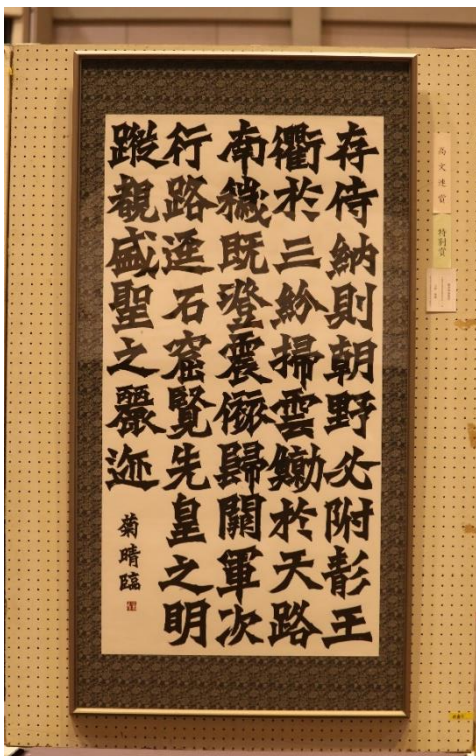 存侍納則朝野必附彰王
衢於三紛掃雲鯨於天路
南穢既澄震旅歸闕軍次
行路逕石窟覽先皇之明
蹤覩盛聖之麗迹
菊晴臨
尚文連賞
特別賞